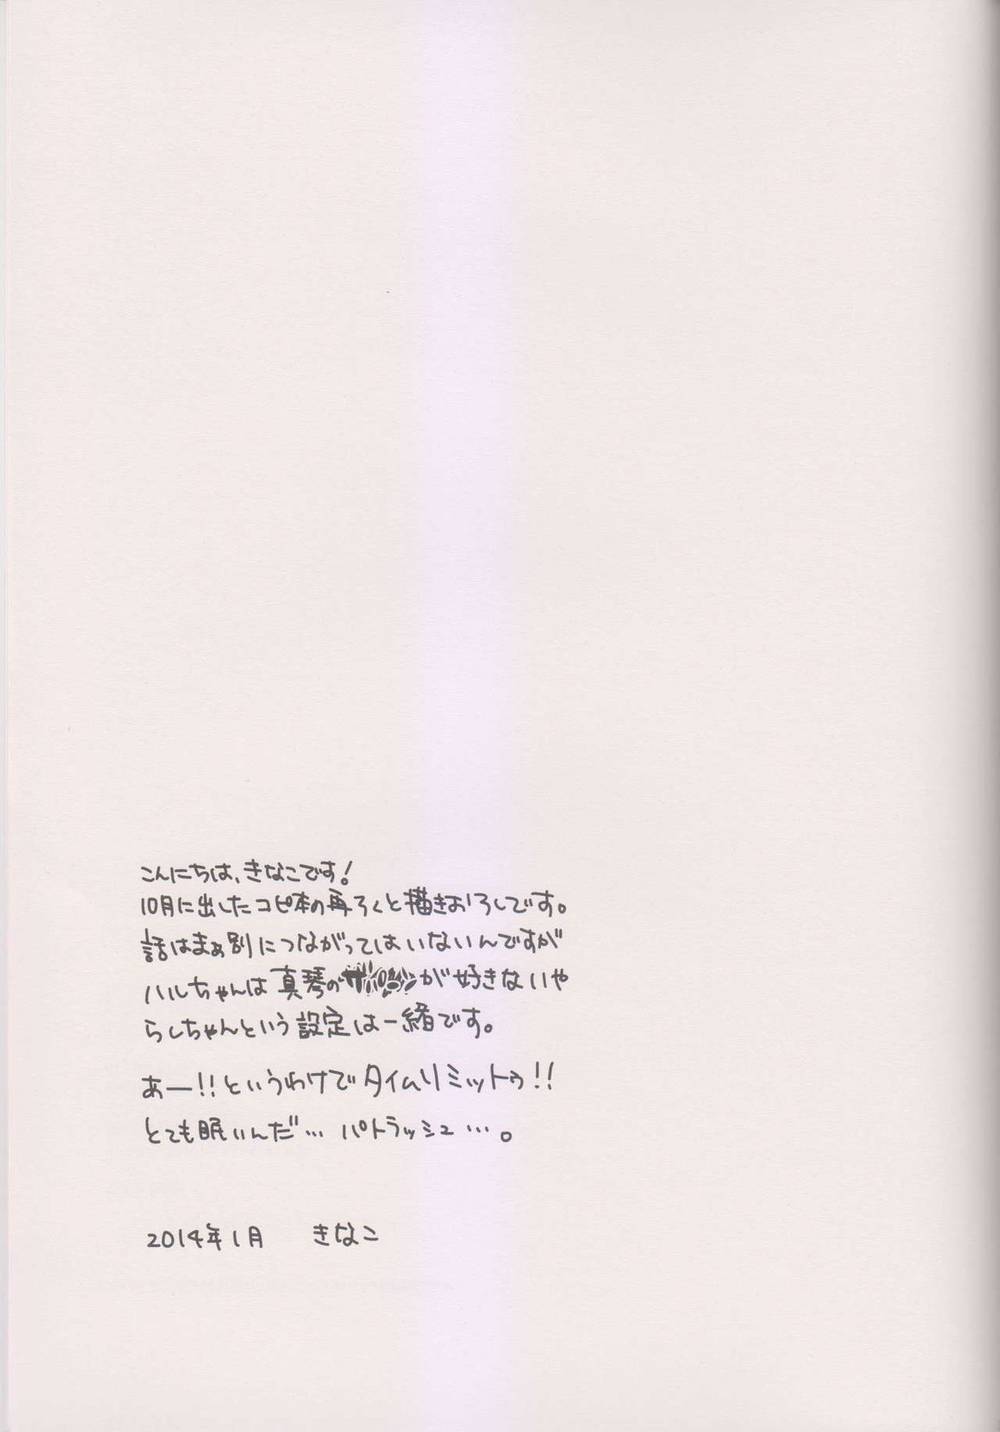 こんにちは、きなこです!
10月に出したコピ本の再ろくと描きおろしです。
話はまぁ別につながってはいないんですが
ハルちゃんは真琴のが好きないや
らしちゃんという設定は一緒です。
あー!!というわけでタイムリミットゥ!!
とても眠いんだ…パトラッシュ…。
2014年1月 きなこ